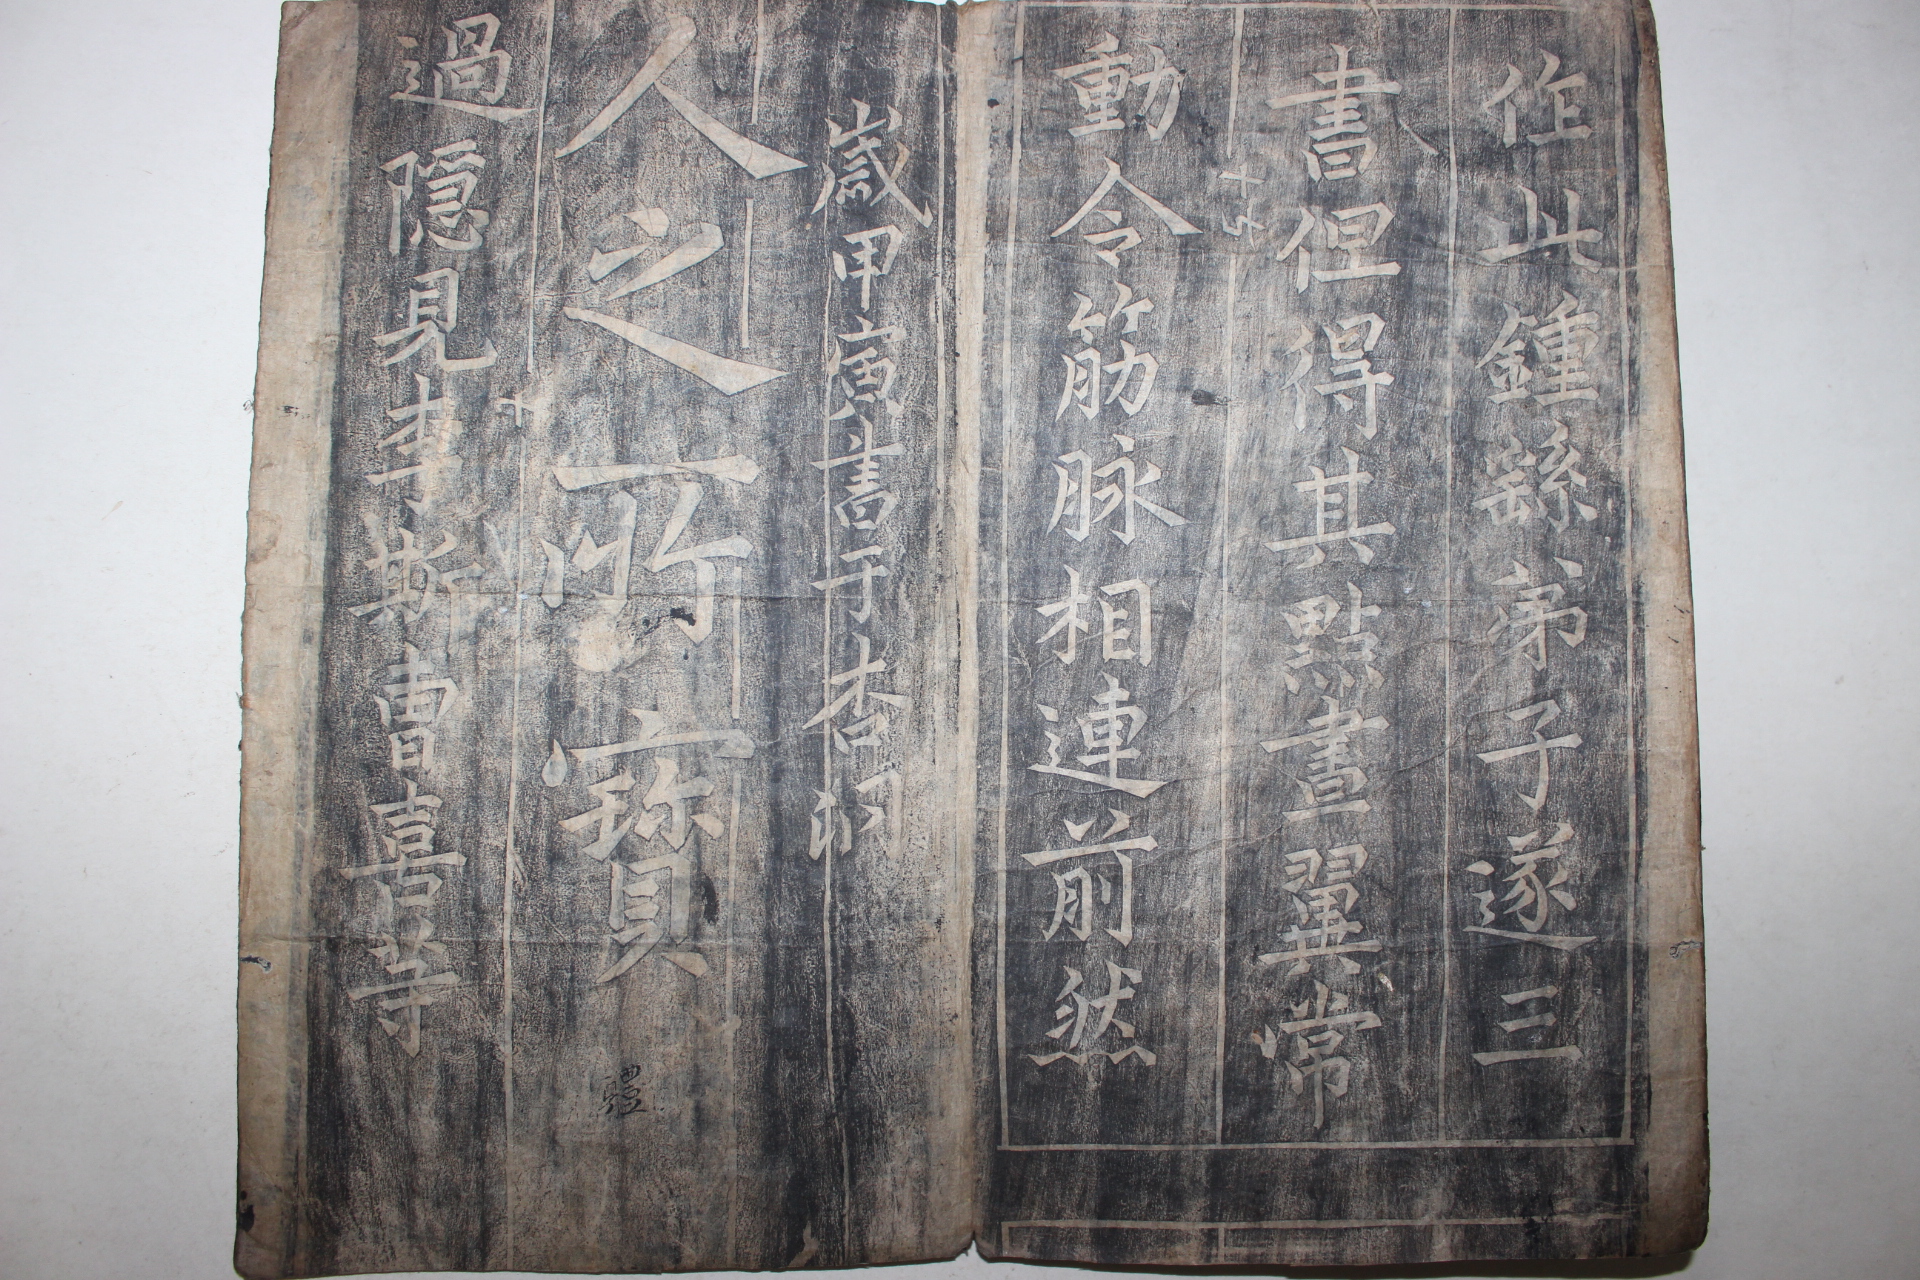 作此鍾繇弟子遂三
書但得其點畫翼常
動令筋脉相連前然
歲甲寅書于杏洞
人之所寶
過隠見李斯曹喜等
體